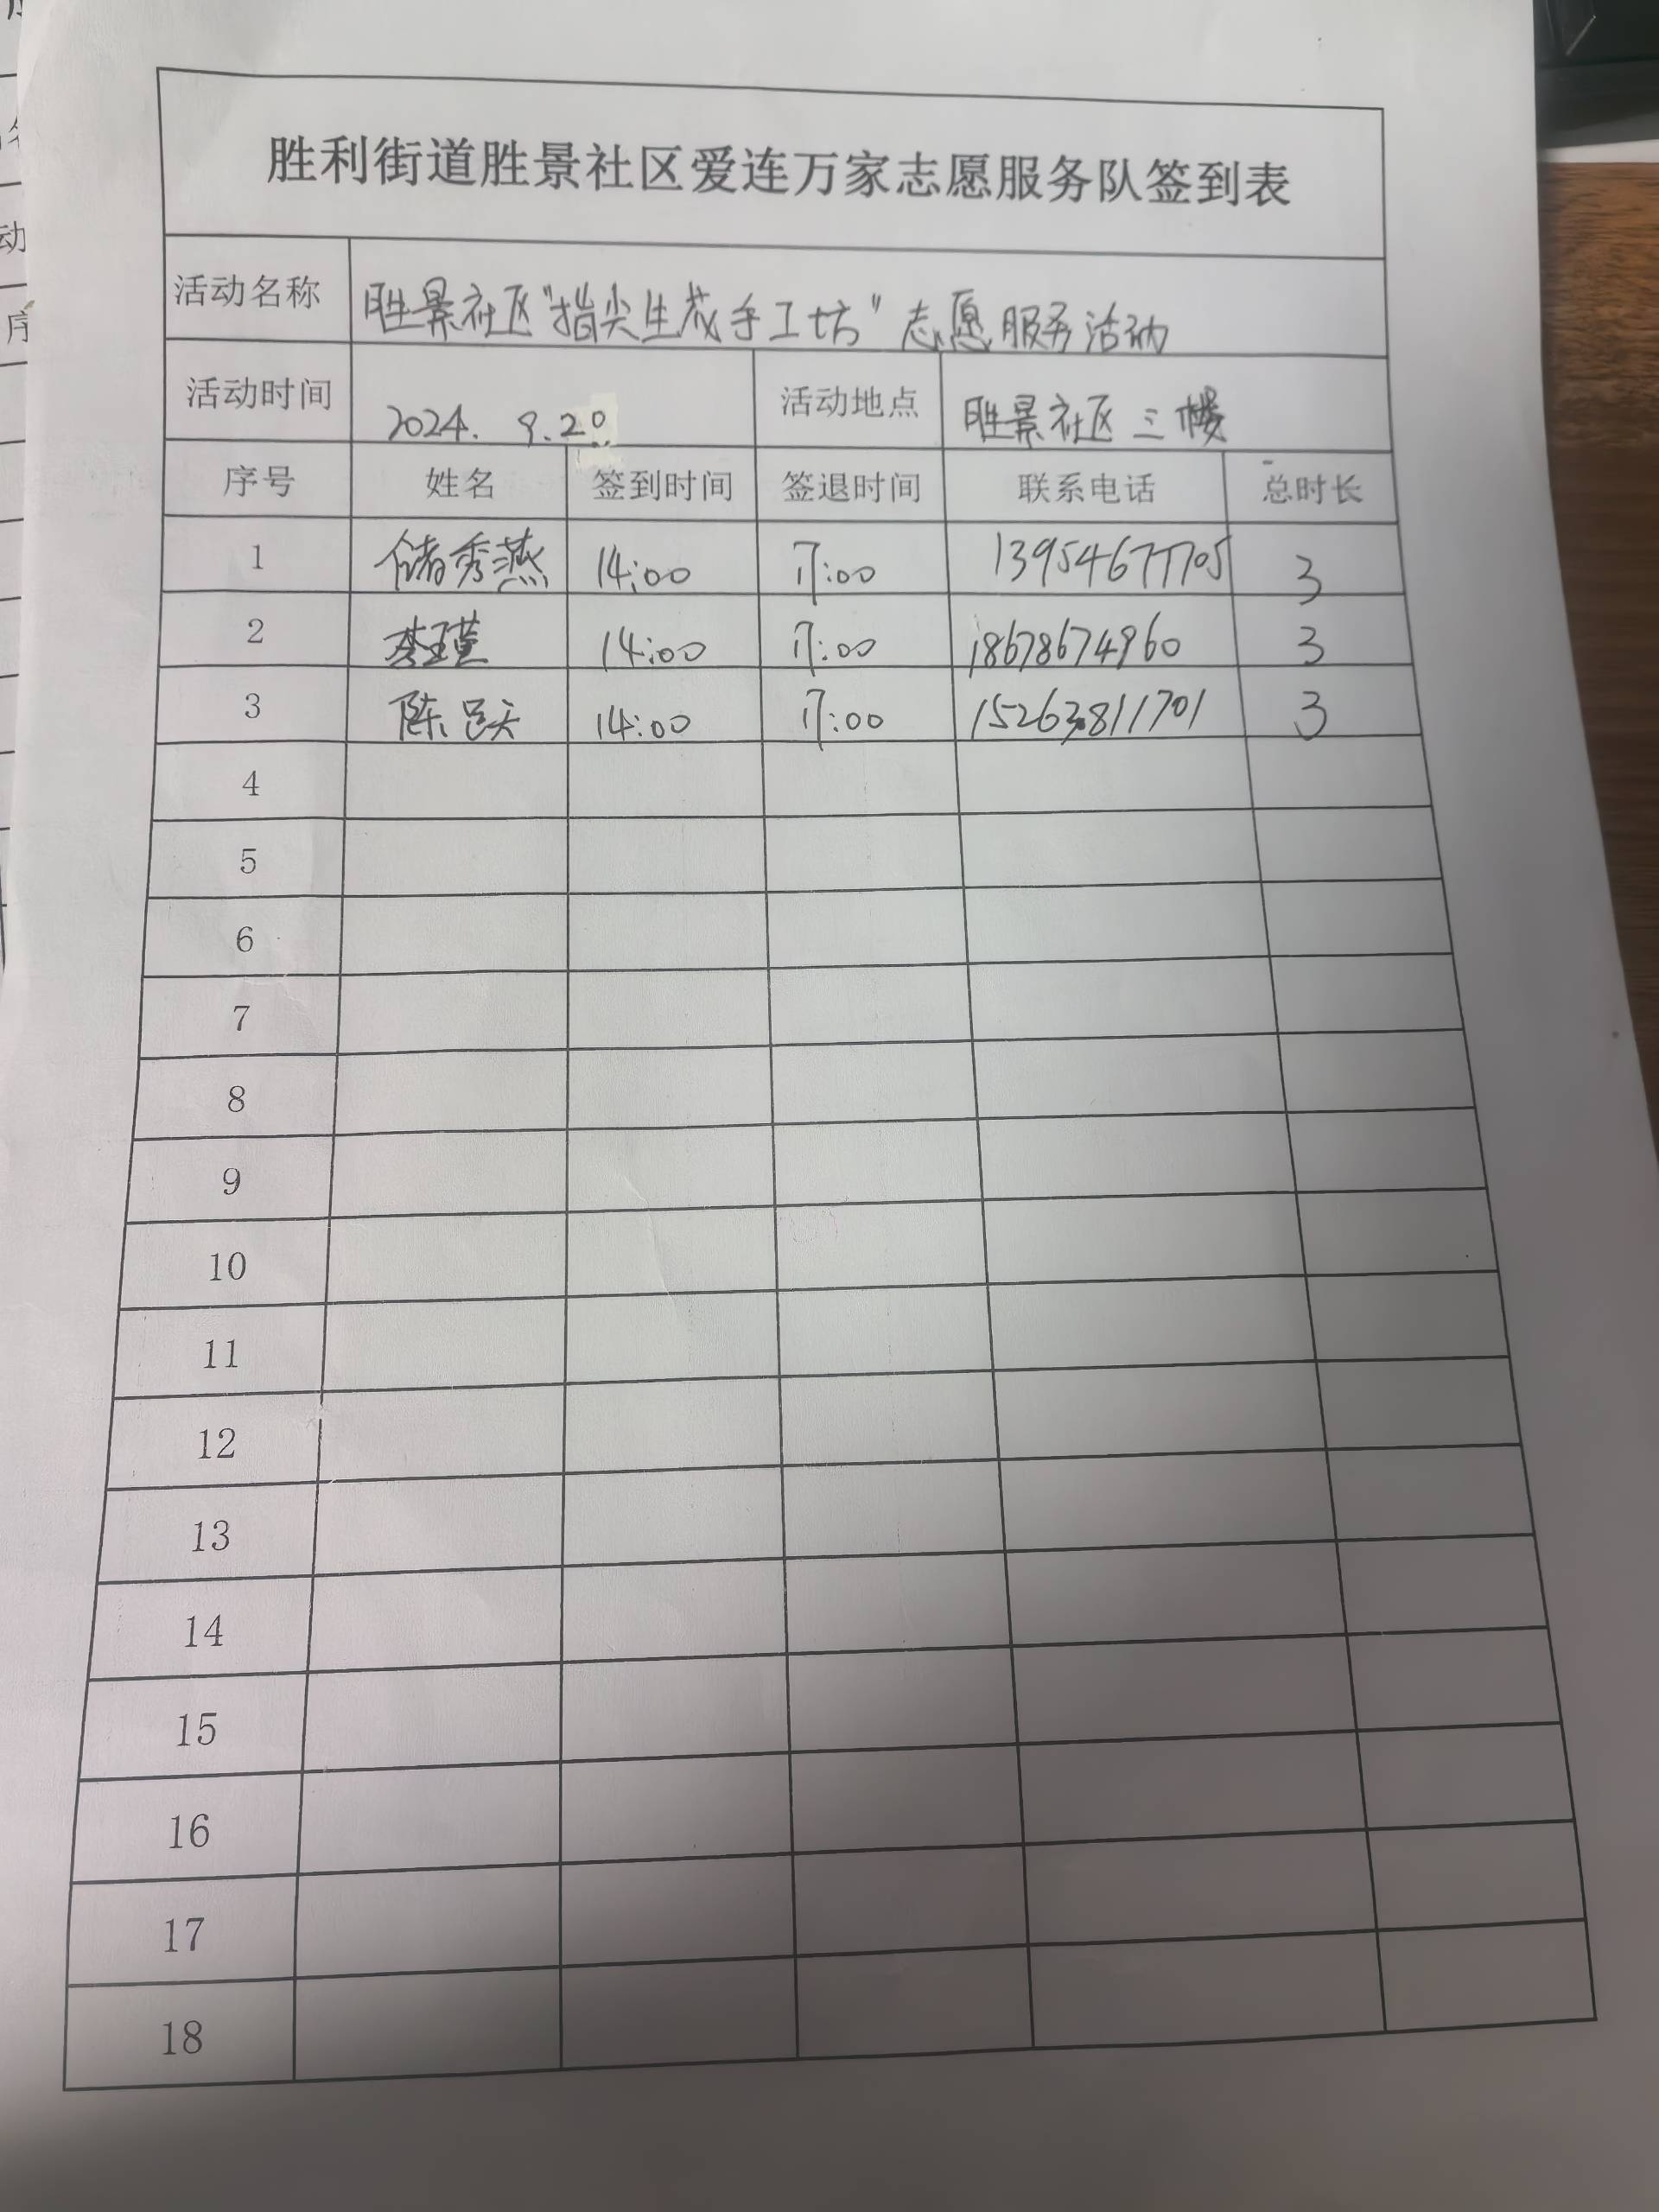 胜利街道胜景社区爱连万家志愿服务队签到表
活动名称 胜景社区“指尖生花手工坊”志愿服务活动
活动时间 2024. 9.20. 活动地点 胜景社区三楼
序号 姓名 签到时间 签退时间 联系电话 总时长
1 储秀燕 14:00 17:00 13954677705 3
2 李瑾 14:00 17:00 18678674960 3
3 陈 14:00 17:00 15263811701 3
4
5
6
7
8
9
10
11
12
13
14
15
16
17
18